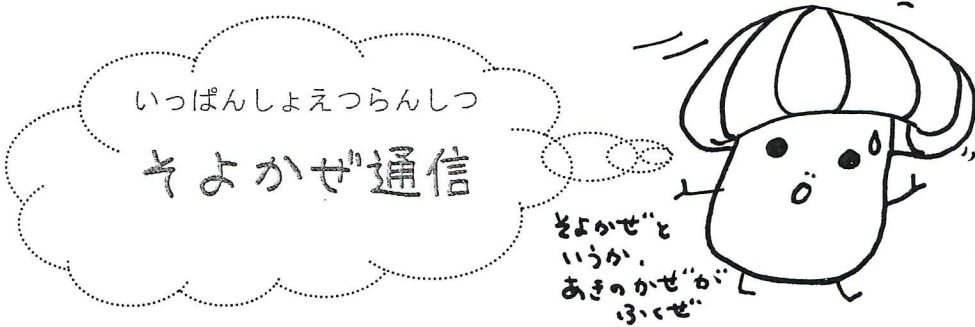 いっぱんしょえつらんしつ
そよかぜ通信
そよかぜと
いうか、
あきのかぜが
ふくぜ